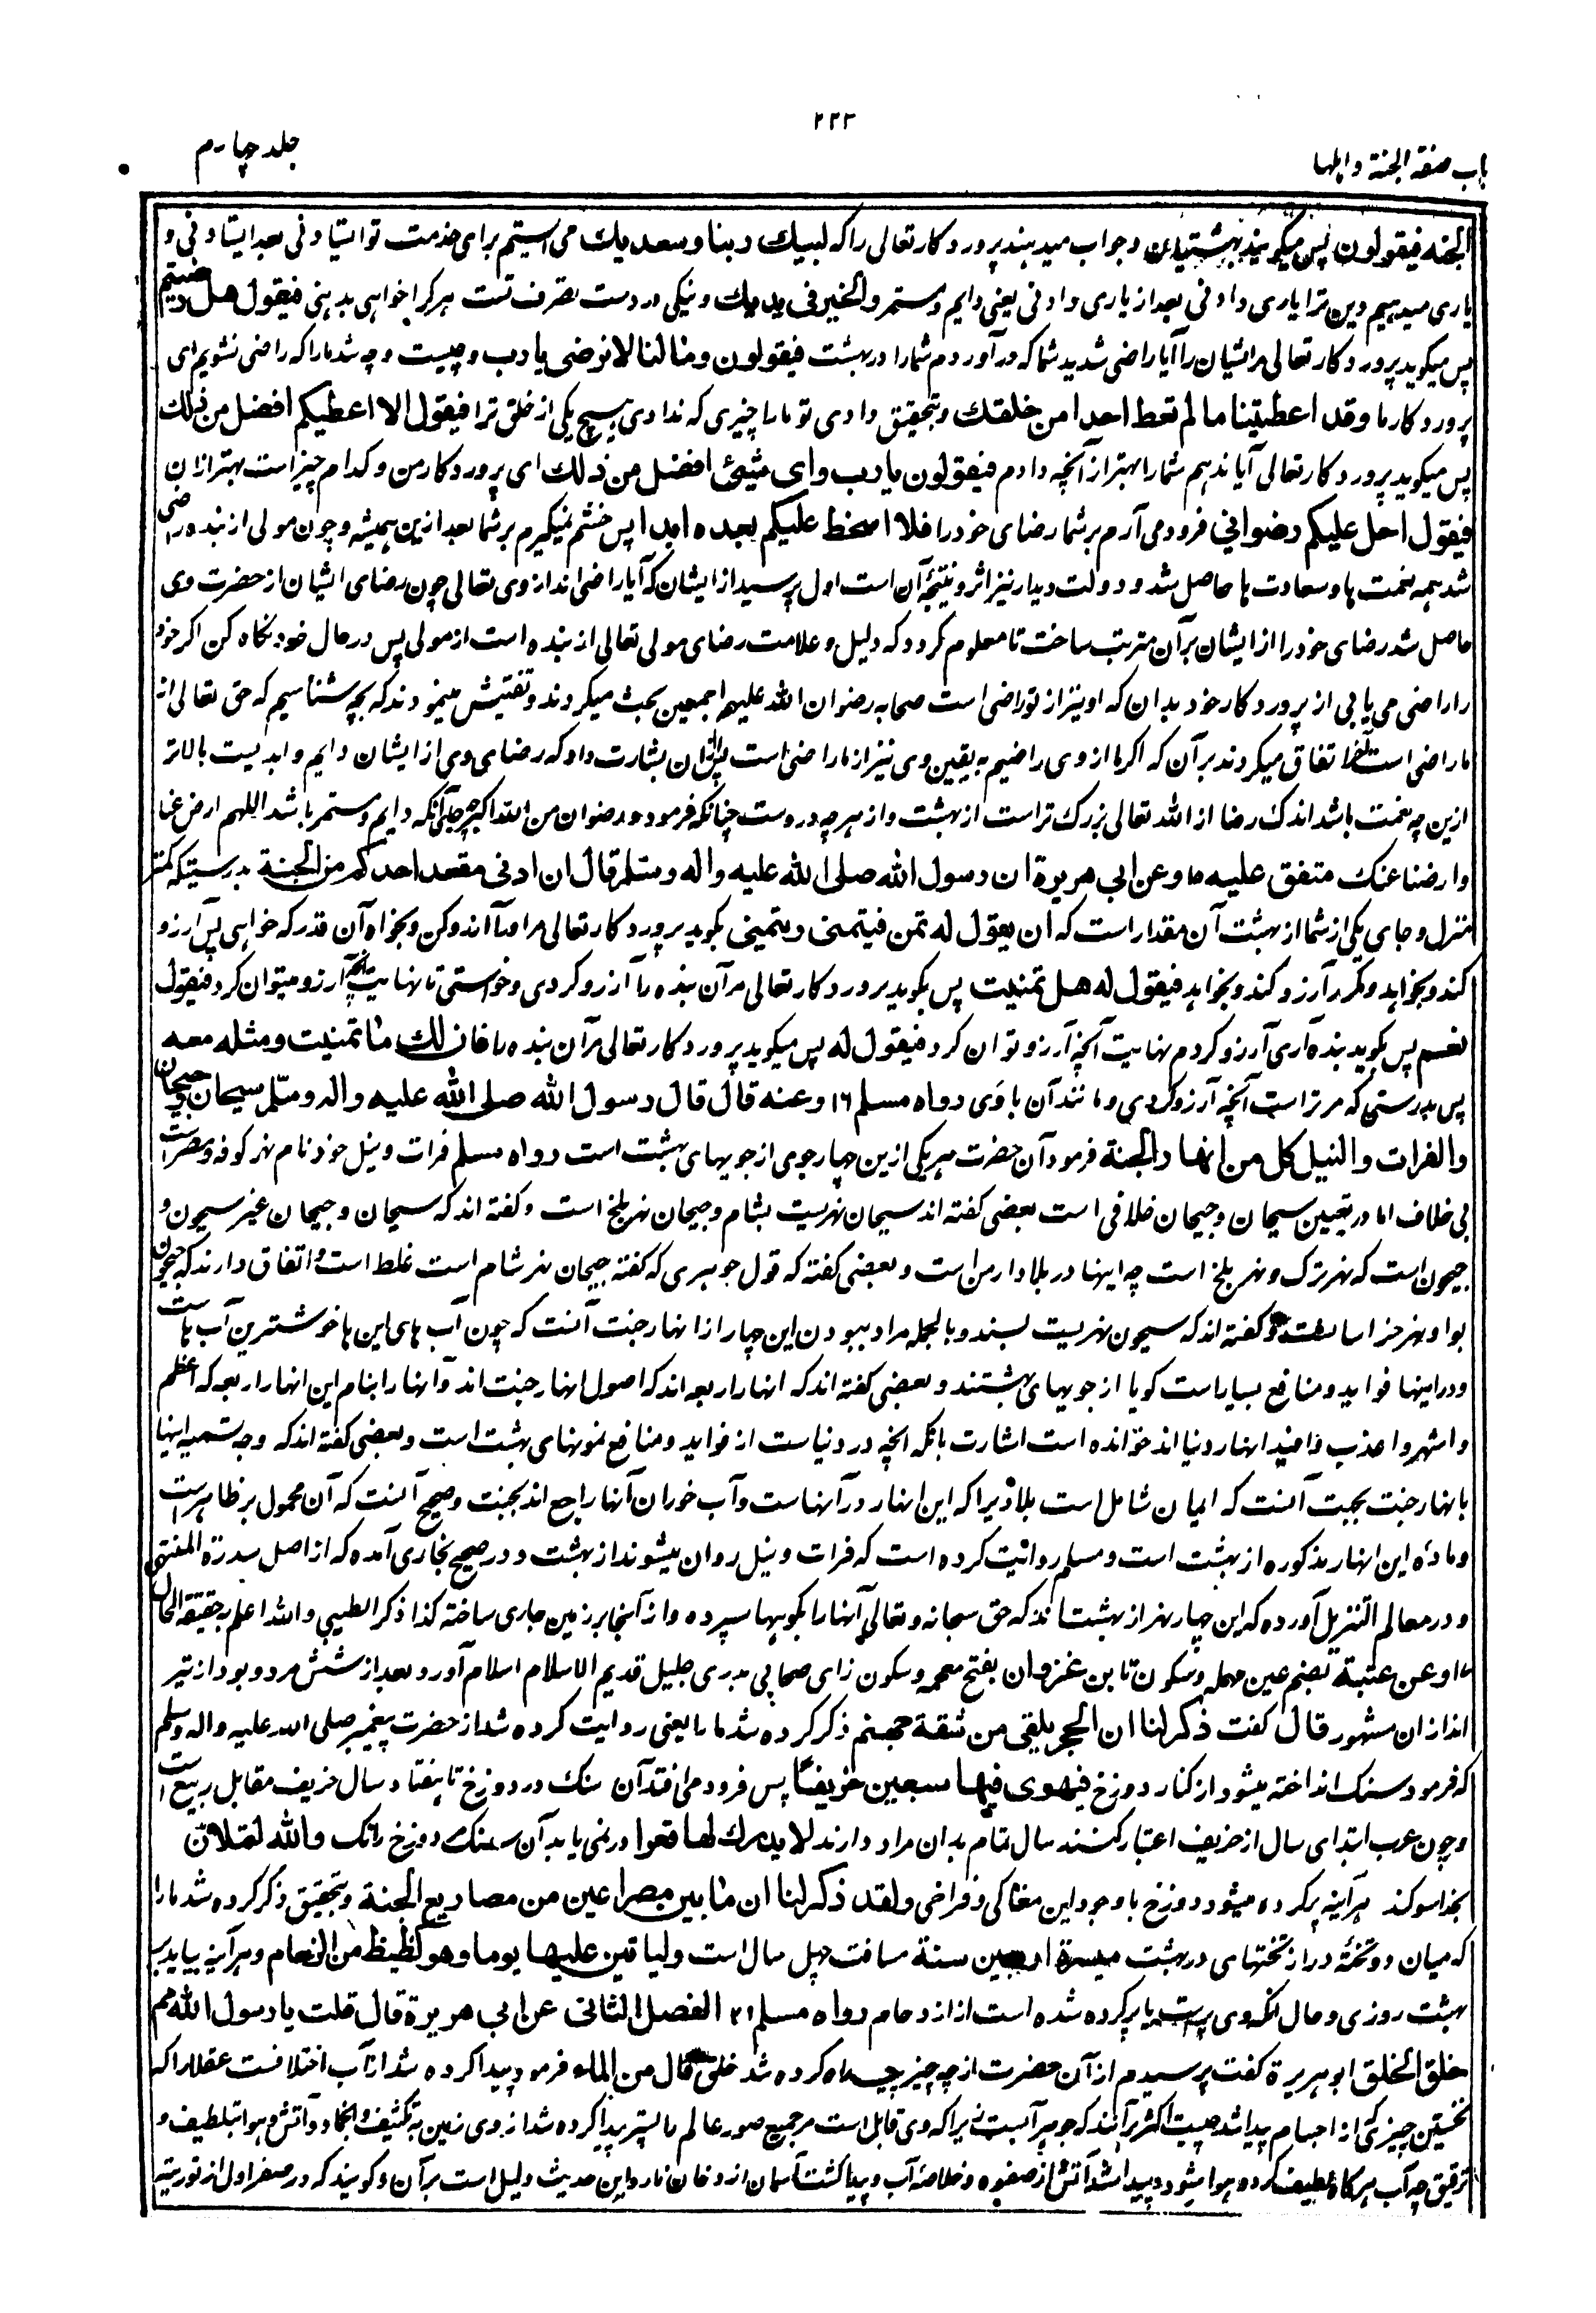 ۲۲۳
باب صفة الجنة واہلہا
جلد چہارم
الجنة فیقولون پس میگویند بہشتیان وجواب میدہند پروردگار تعالی را کہ لبیک ربنا وسعدیک می استیم برای خدمت تو استادنی بعد استادنی و
یاری میدہیم دین ترا یاری دادنی بعد از یاری دادنی یعنی دایم ومستمر والخیر فی یدیک ونیکی در دست تصرف تست ہر کرا خواہی بدہی فیقول هل رضیتم
پس میگوید پروردگار تعالی مر ایشان را آیا راضی شدید شما کہ در آوردم شما را در بہشت فیقولون وما لنا لا نرضی یا رب وچیست وچہ شد مارا کہ راضی نشویم ای
پروردگار ما وقد اعطیتنا ما لم تعط احدا من خلقک وبتحقیق دادی تو مارا چیزی کہ ندادی ہیچ یکی از خلق ترا فیقول الا اعطیکم افضل من ذلک
پس میگوید پروردگار تعالی آیا ندہم شمارا بہتر از آنچہ دادم فیقولون یا رب وای شیئ افضل من ذلک ای پروردگار من وکدام چیز است بہتر ازان
فیقول احل علیکم رضوانی فرود می آرم بر شما رضای خود را فلا اسخط علیکم بعده ابدا پس خشم نمیگیرم بر شما بعد ازین ہمیشہ وچون مولی از بندہ راضی
شد ہمہ نعمت ہا وسعادت ہا حاصل شد ودولت دیدار نیز اثر ونتیجۂ آن است اول پرسید از ایشان کہ آیا راضی اند از وی تعالی چون رضای ایشان از حضرت وی
حاصل شد رضای خود را از ایشان بر آن مترتب ساخت تا معلوم گردد کہ دلیل وعلامت رضای مولی تعالی از بندہ است از مولی پس در حال خود نگاہ کن اگر خود
را راضی می یابی از پروردگار خود بدان کہ او نیز از تو راضی است صحابہ رضوان اللہ علیہم اجمعین بحث میکردند وتفتیش مینمودند کہ بچہ شناسیم کہ حق تعالی از
ما راضی است اتفاق میکردند بر آن کہ اگر ما از وی راضیم بہ یقین وی نیز از ما راضی است بشارت داد کہ رضای وی از ایشان دایم وابدیست بالاتر
ازین چہ نعمت باشد اندک رضا از اللہ تعالی بزرک تر است از بہشت واز ہرچہ دروست چنانکہ فرمودہ ورضوان من اللہ اکبر چہ جای آنکہ دایم ومستمر باشد اللہم ارض عنا
وارضنا عنک متفق علیه وعن ابی هریرة ان رسول الله صلی الله علیه واله وسلم قال ان ادنی مقعد احدکم من الجنة بدرستیکہ کمتر
منزل وجای یکی از شما از بہشت آن مقدار است کہ ان یقول له تمن فیتمنی ویتمنی بگوید پروردگار تعالی مر او را آرزو کن وبخواہ آن قدر کہ خواہی پس آرزو
کند وبخواہد ومکرر آرزو کند وبخواہد فیقول له هل تمنیت پس بگوید پروردگار تعالی مر آن بندہ را آرزو کردی وخواستی تا نہایت آنچہ آرزو میتوان کرد فیقول
نعم پس بگوید بندہ آری آرزو کردم نہایت آنچہ آرزو توان کرد فیقول له پس میگوید پروردگار تعالی مر آن بندہ را فان لک ما تمنیت ومثله معه
پس بدرستی کہ مر تراست آنچہ آرزو کردی ومانند آن با وی رواه مسلم ۱۶ وعنه قال قال رسول الله صلی الله علیه واله وسلم سیحان وجیحان
والفرات والنیل کل من انهار الجنة فرمود آن حضرت ہر یکی ازین چہار جوی از جویہای بہشت است رواه مسلم فرات ونیل خود نام نہر کوفہ ومصر است
بی خلاف اما در تعیین سیحان وجیحان خلافی است بعضی گفتہ اند سیحان نہریست بشام وجیحان نہر بلخ است وگفتہ اند کہ سیحان وجیحان غیر سیحون و
جیحون است کہ نہر ترک ونہر بلخ است چہ اینہا در بلاد ارمن است وبعضی گفتہ کہ قول جوہری کہ گفتہ جیحان نہر شام است غلط است واتفاق دارند کہ جیحون
بواو نہر خراسان است وگفتہ اند کہ سیحون نہریست بسند وبالجملہ مراد ببودن این چہار از انہار جنت آنست کہ چون آب ہای این ہا خوشترین آب ہاست
ودر اینہا فواید ومنافع بسیار است گویا از جویہای بہشتند وبعضی گفتہ اند کہ انہار اربعہ اند کہ اصول انہار جنت اند وآنہا را بنام این انہار اربعہ کہ اعظم
واشہر واعذب وافید انہار دنیا اند خواندہ است اشارت بآنکہ انچہ در دنیاست از فواید ومنافع نمونہای بہشت است وبعضی گفتہ اند کہ وجہ تسمیہ اینہا
بانہار جنت بجہت آنست کہ ایمان شامل است بلاد را کہ این انہار در آنہاست وآب خوران آنہا راجع اند بجنت وصحیح آنست کہ آن محمول بر ظاہر است
ومادہ این انہار مذکورہ از بہشت است ومسلم روایت کردہ است کہ فرات ونیل روان میشوند از بہشت ودر صحیح بخاری آمدہ کہ از اصل سدرة المنتہی
ودر معالم التنزیل آوردہ کہ این چہار نہر از بہشت اند کہ حق سبحانہ وتعالی آنہا را بکوہہا سپردہ واز آنجا بر زمین جاری ساختہ کذا ذکر الطیبی واللہ اعلم بحقیقة الحال
۱۷ وعن عتبة بضم عین مہملہ وسکون تا بن غزوان بفتح معجمہ وسکون زای صحابی بدری جلیل قدیم الاسلام اسلام آورد بعد از شش مرد وبود از تیر
اندازان مشہور قال گفت ذکر لنا ان الحجر یلقی من شفة جهنم ذکر کردہ شد ما را یعنی روایت کردہ شد از حضرت پیغمبر صلی اللہ علیہ والہ وسلم
کہ فرمود سنک انداختہ میشود از کنار دوزخ فیهوی فیها سبعین خریفا پس فرود می افتد آن سنک در دوزخ تا ہفتاد سال خریف مقابل ربیع است
وچون عرب ابتدای سال از خریف اعتبار کنند سال تمام بدان مراد دارند لا یدرک لها قعرا در نمی یابد آن سنک دوزخ را تک والله لتملأن
بخدا سوکند ہرآینہ پر کردہ میشود دوزخ با وجود این مغاکی وفراخی ولقد ذکر لنا ان ما بین مصراعین من مصاریع الجنة وبتحقیق ذکر کردہ شد مارا
کہ میان دو تختۂ در از تختہای در بہشت مسیرة اربعین سنة مسافت چہل سال است ولیاتین علیها یوم وهو کظیظ من الزحام وہرآینہ بیاید بر
بہشت روزی وحال آنکہ وی پر است یا پر کردہ شدہ است از ازدحام رواه مسلم الفصل الثانی عن ابی هریرة قال قلت یا رسول الله مم
خلق الخلق ابو ہریرة گفت پرسیدم از آن حضرت از چہ چیز پیدا کردہ شد خلق قال من الماء فرمود پیدا کردہ شد از آب اختلافست عقلا را کہ
نخستین چیزی کہ از اجسام پیدا شد چیست اکثر بر آنند کہ جوہر آبست زیرا کہ وی قابل است مر جمیع صور عالم را پستر پیدا کردہ شد از وی زمین بہ تکثیف وانجماد وآتش وہوا بتلطیف و
ترقیق چہ آب ہرگاہ لطیف کردہ ہوا میشود وپیدا شد آتش از صفوہ وخلاصۂ آب وپیدا گشت آسمان از دخان نار واین حدیث دلیل است بر آن وگویند کہ در سفر اول از توریت